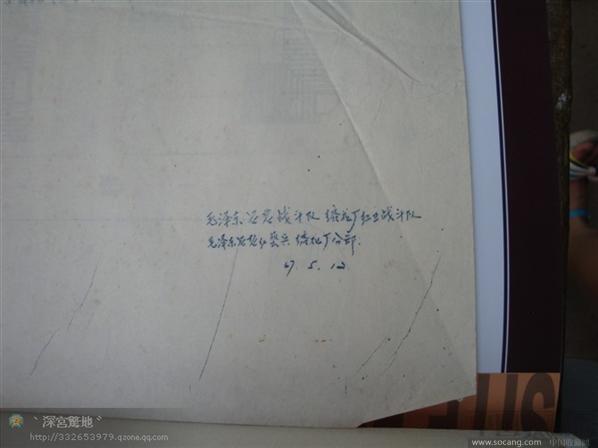 毛泽东思想战斗队 绵纺厂红卫战斗队
毛泽东思想红艺兵 绵纺厂分部.
67. 5. 12
、深宫驚地、
http://332653979.qzone.qq.com
www.socang.com 中国收藏网